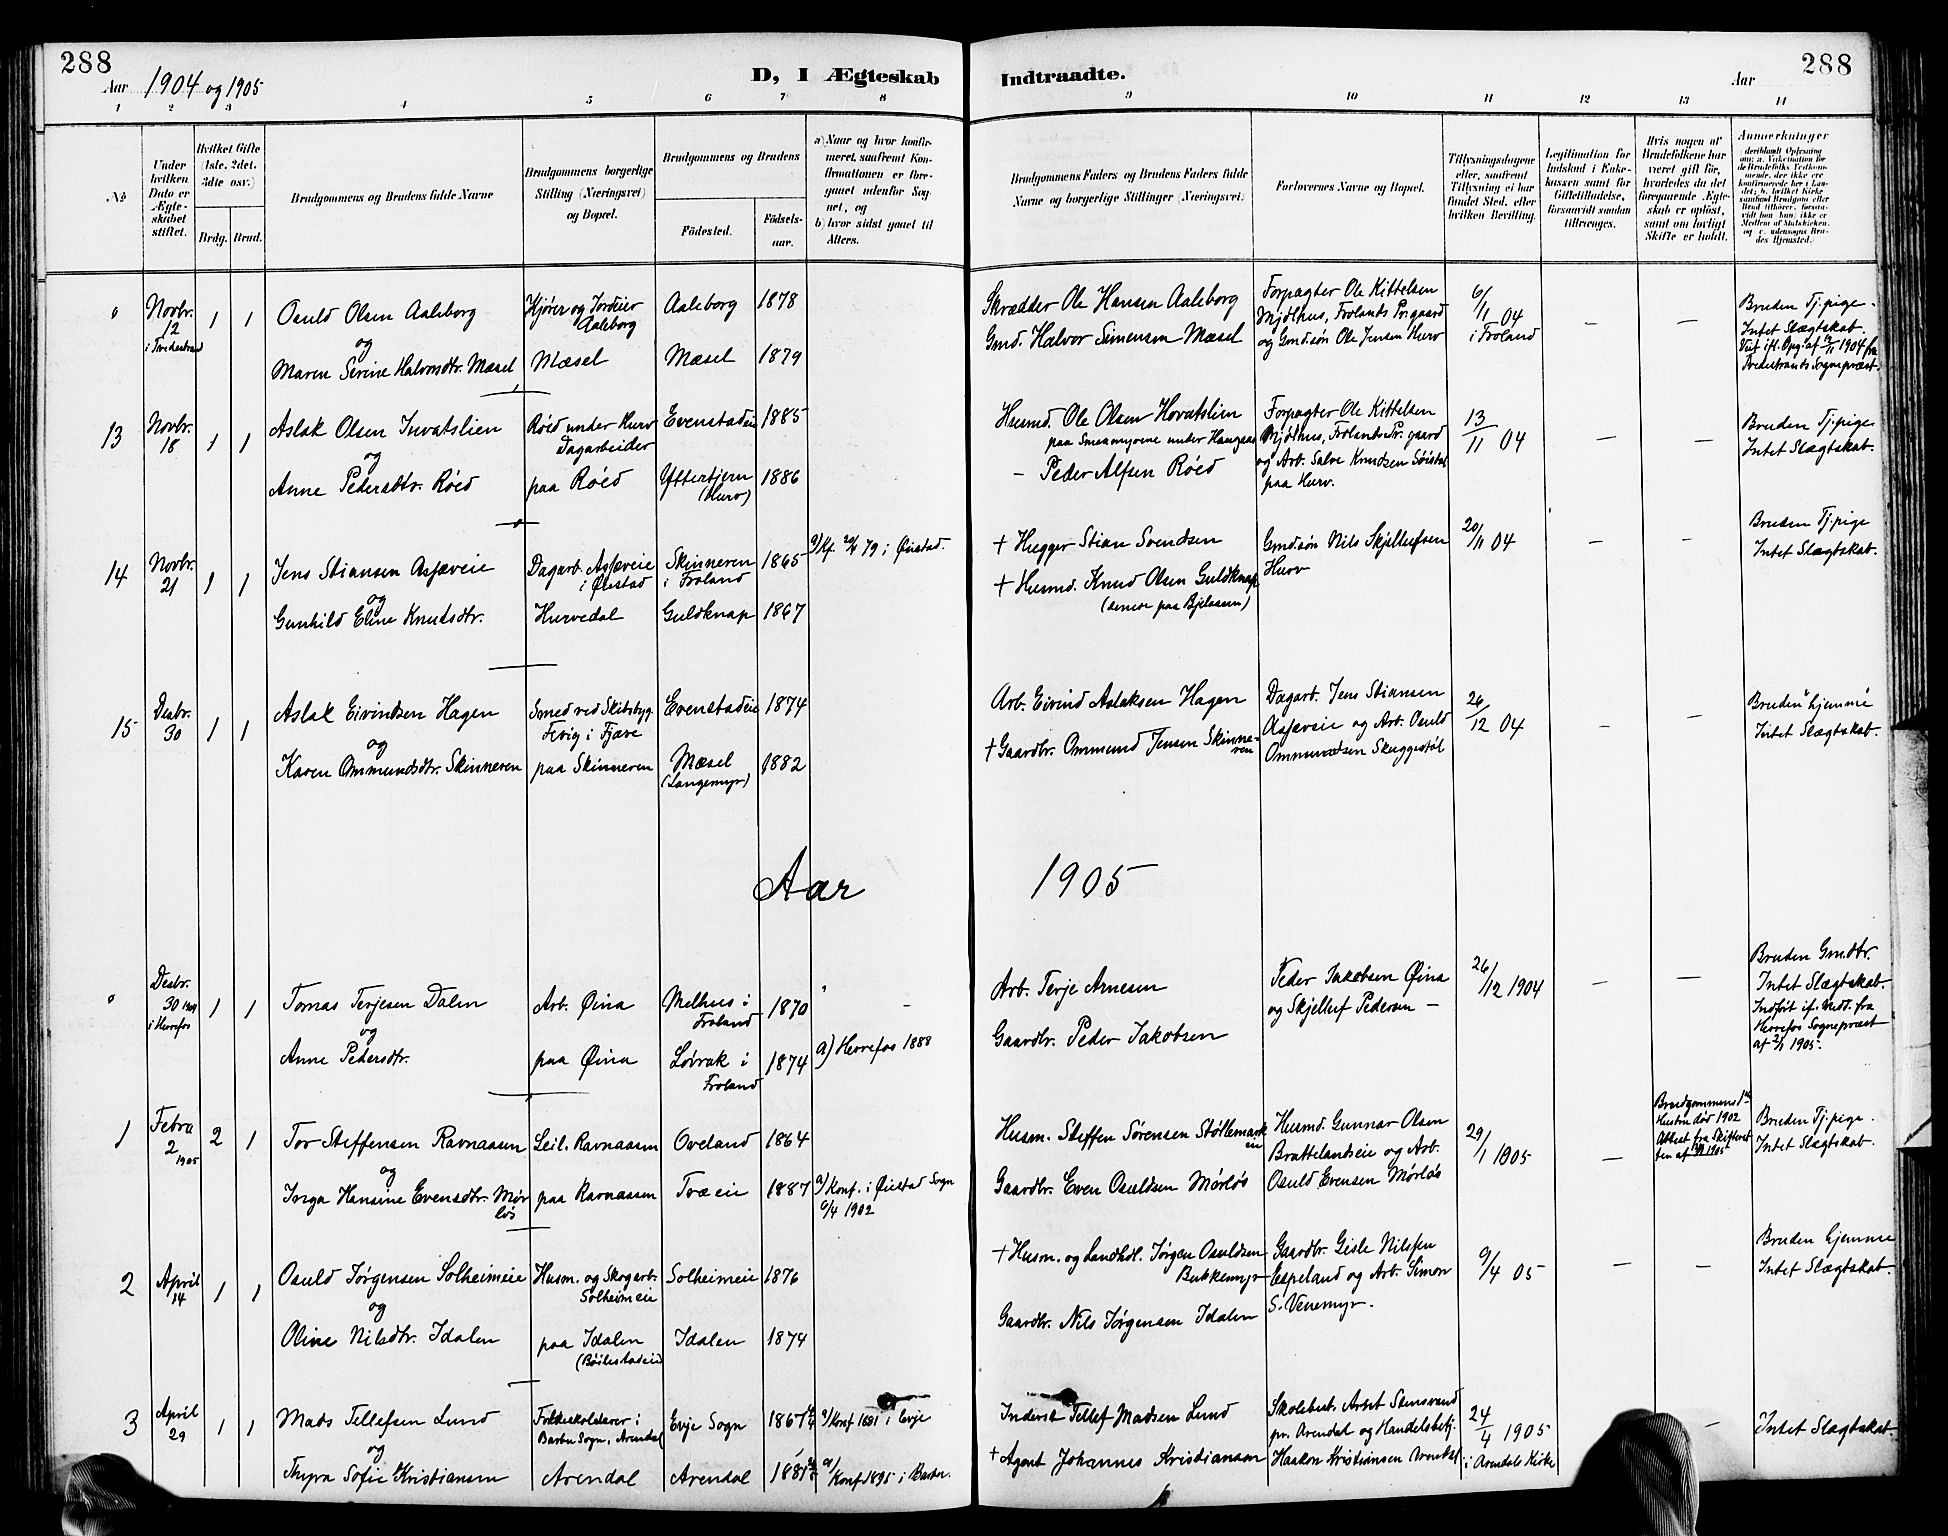 288
288
Aar 1904 og 1905
D, I Ægteskab Indtraadte.
Aar
1 2 3 4 5 6 7 8 9 10 11 12 13 14
No
Under hvilken Dato er Ægteskabet stiftet.
Hvilket Gifte (1ste. 2det. 3die osv.)
Brdg. Brud.
Brudgommens og Brudens fulde Navne
Brudgommens borgerlige Stilling (Næringsvei) og Bopæl.
Brudgommens og Brudens
Fødested.
Fødselsaar.
a) Naar og hvor konfirmeret, saafremt Konfirmationen er foregaaet udenfor Sognet, og
b) hvor sidst gaaet til Alters.
Brudgommens Faders og Brudens Faders fulde Navne og borgerlige Stillinger (Næringsvei)
Forlovernes Navne og Bopæl.
Tillysningsdagene eller, saafremt Tillysning ei har fundet Sted, efter hvilken Bevilling.
Legitimation for Indskud i Enkekassen samt for Giftetilladelse, forsaavidt saadan tiltrænges.
Hvis nogen af Brudefolkene har været gift før, hvorledes da det foregaaende Ægteskab er opløst, samt om lovligt Skifte er holdt.
Anmerkninger
Novbr. 12
1 1
Osuld Olsen Aaleborg
og
Maren Serine Halvorsdtr. Mæsel
Kjører og Jordeier Aaleborg
Mæsel
Aaleborg 1878
Mæsel 1879
Skrædder Ole Hansen Aaleborg
Gmd. Halvor Simensen Mæsel
Forpagter Ole Kittelsen
Mjölhus, Frolands Pr.gaard
og Gmd.søn Ole Jensen Hurv
6/1 04
i Froland
Bruden Tj.pige.
Intet Slægtskab.
13 Novbr. 18
1 1
Aslak Olsen
og
Anne Pedersdtr. Röed
Röed under Hurv
Dagarbeider
paa Röed
Evenstadeie 1885
Yttertjern (Hurv) 1886
Husmd. Ole Olsen Hovatslien
- Peder Alfsen Röed
Forpagter Ole Kittelsen
Mjölhus, Frolands Pr.gaard
og Arb. Salve Knudsen
paa Hurv.
13/11 04
Bruden Tj.pige
Intet Slægtskab.
14 Novbr. 21
1 1
Jens Stiansen Asfæveie
og
Gunhild Eline Knudsdtr.
Dagarb. Asfæveie
i Øiestad
Hurvedal
Skinneren i Froland 1865
Guldknap 1867
Kf. 79 i Øiestad.
+ Hugger Stian Svendsen
+ Husmd. Knud Olsen Guldknap
Gmd.søn Nils Skjellufsen
Hurv
20/11 04
Bruden Tj.pige
Intet Slægtskab.
15 Desbr. 30
1 1
Aslak Eivindsen Hagen
og
Karen Ommundsdtr. Skinneren
Smed ved Skibsbyg.
Fevig i Fjære
paa Skinneren
Evenstadeie 1874
Mæsel (Langemyr) 1882
Arb. Eivind Aslaksen Hagen
+ Gaardbr. Ommund Jensen Skinneren
Dagarb. Jens Stiansen
Asfæveie og Arb. Osuld
Ommundsen Skuggestöl
26/12 04
Bruden hjemme
Intet Slægtskab.
Aar 1905
Desbr. 30 1904
i Herrefos
1 1
Tomas Terjesen Dalen
og
Anne Pedersdtr.
Arb. Øina
paa Øina
Melhus i Froland 1870
Løvrak i Froland 1874
a) Herrefos 1888
Arb. Terje Arnesen
Gaardbr. Peder Jakobsen
Peder Jakobsen Øina
og Skjelluf Pedersen -
26/12 1904
Bruden Gmdtr.
Intet Slægtskab.
Indført if. Medd. fra
Herrefos Sognepræst
af 2/1 1905.
1 Febru 2 1905
2 1
Tor Steffensen Ravnaasen
og
Inga Hansine Evensdtr. Mørløs
Leil. Ravnaasen
paa Ravnaasen
Oveland 1864
Træeie 1887
a) Konf. i Øiestad Sogn
6/4 1902
Husm. Steffen Sørensen
Gaardbr. Even Osuldsen Mörlös
Husmd. Gunnar Olsen
Brattelandseie og Arb.
Osuld Evensen Mörlös
29/1 1905
Brudgommens 1ste
Hustru død 1902
Attest fra
Bruden Tj.pige.
Intet Slægtskab.
2 April 14
1 1
Osuld Jørgensen Solheimeie
og
Oline Nilsdtr. Idalen
Husm. og Skogarb.
Solheimeie
paa Idalen
(Böilestadeie)
Solheimeie 1876
Idalen 1874
+ Husm. og Landhdl. Jørgen Osuldsen
Bukkemyr
Gaardbr. Nils Jørgensen Idalen
Gaardbr. Gisle Nilssen
Espeland og Arb. Simon
S. Venemyr.
9/4 05
Bruden hjemme
Intet Slægtskab.
3 April 29
1 1
Mads Tellefsen Lund
og
Thyra Sofie Kristiansen
Folkeskolelærer i
Barbu Sogn, Arendal
Arendal
Evje Sogn 1867
Arendal 1881
a) Konf 1881 i Evje
a) Konf 1895 i Barbu.
Inderst Tellef Madsen Lund
+ Agent Johannes Kristiansen
Skolebest. Arnt Stensvand
pr. Arendal og Handelsbetj.
Haakon Kristiansen Arendal
24/4 1905
i Arendals Kirke
Intet Slægtskab.